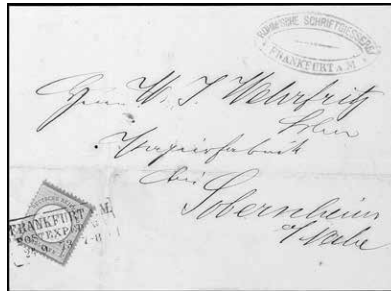 RÜHL'SCHE SCHRIFTGIESSEREI
FRANKFURT A. M.
Herrn W. J. Wehrfritz
Papierfabrik
bei
Sobernheim
a/Nahe
FRANKFURT A. M.